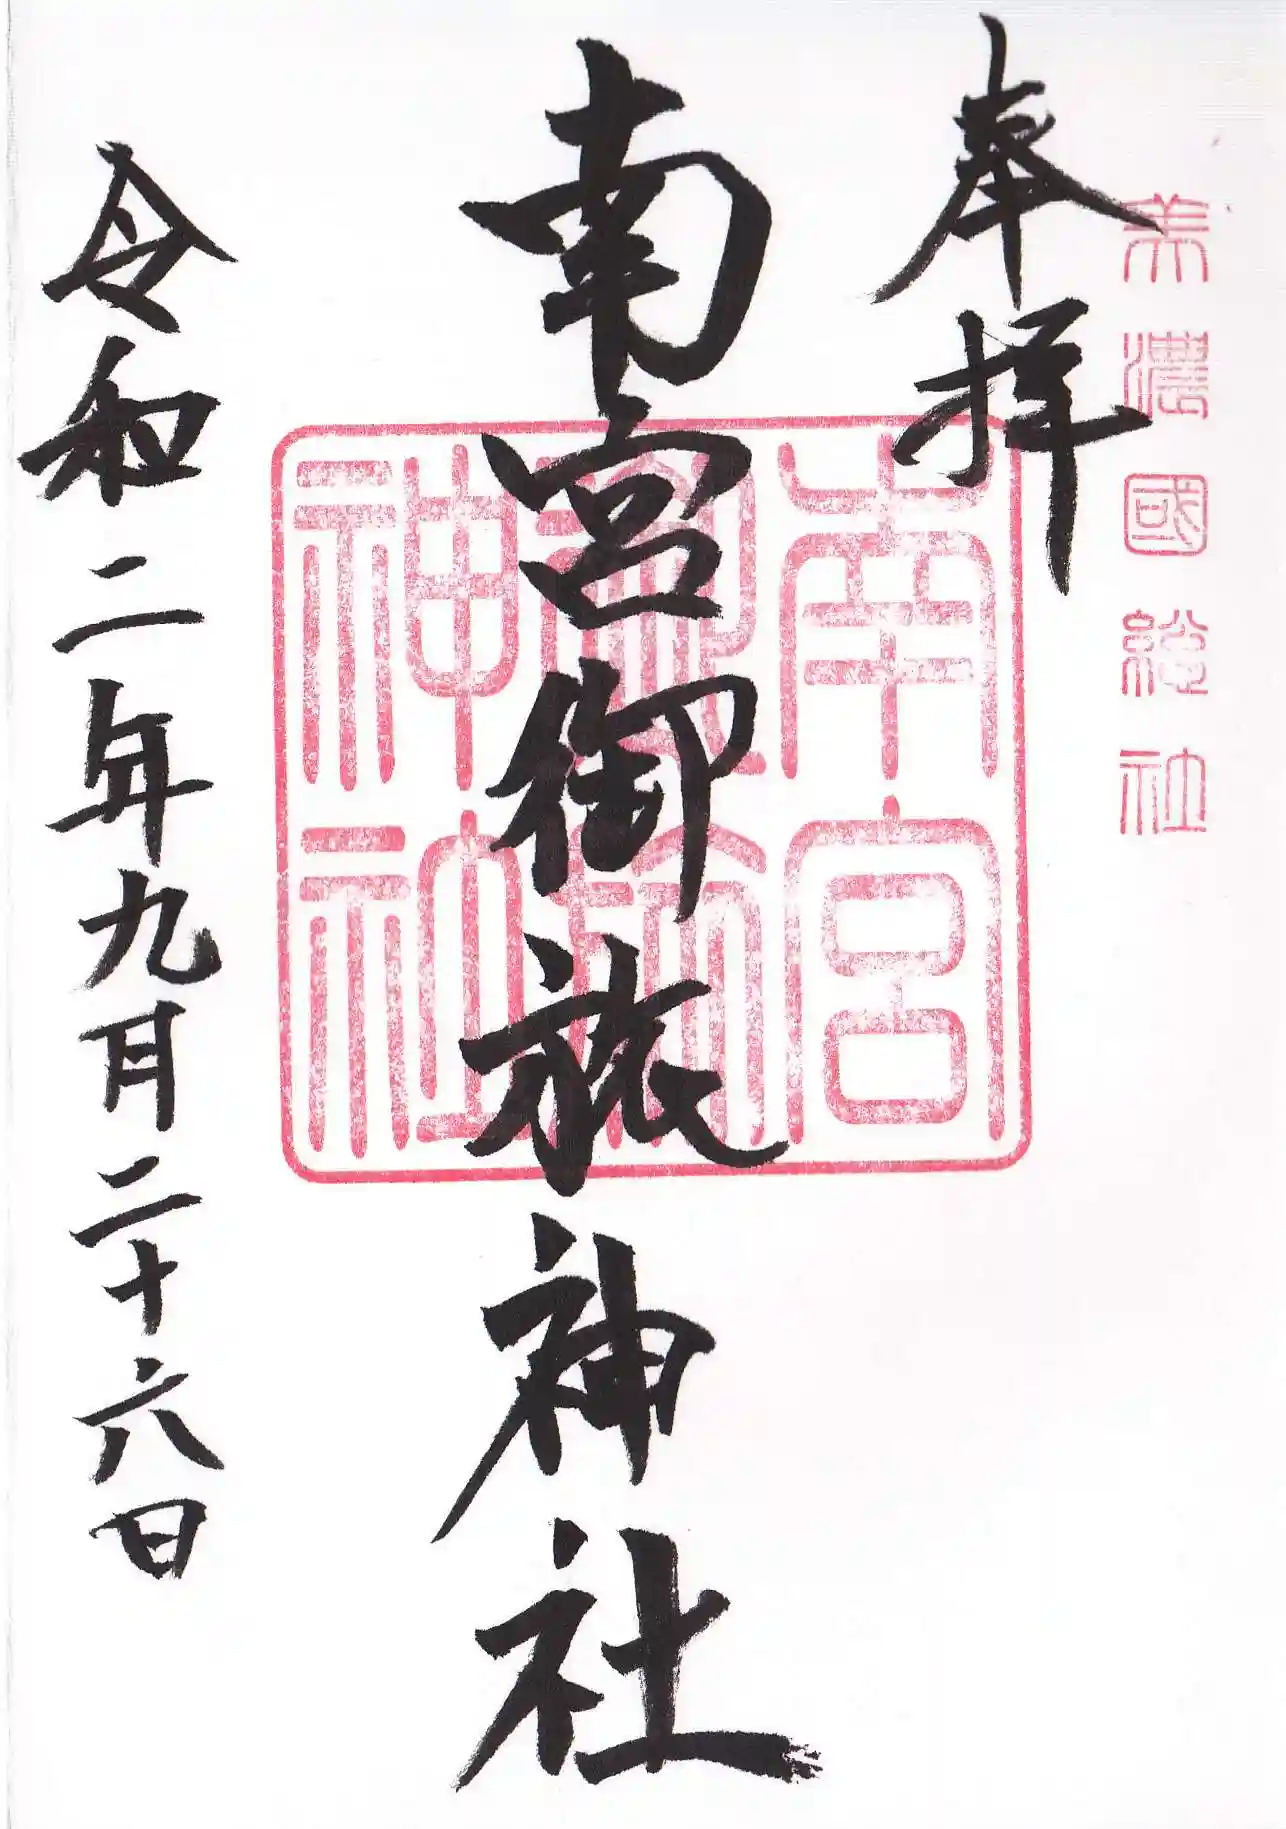 美濃國総社
奉拝
南宮御旅神社
南宮
神社
令和二年九月二十六日